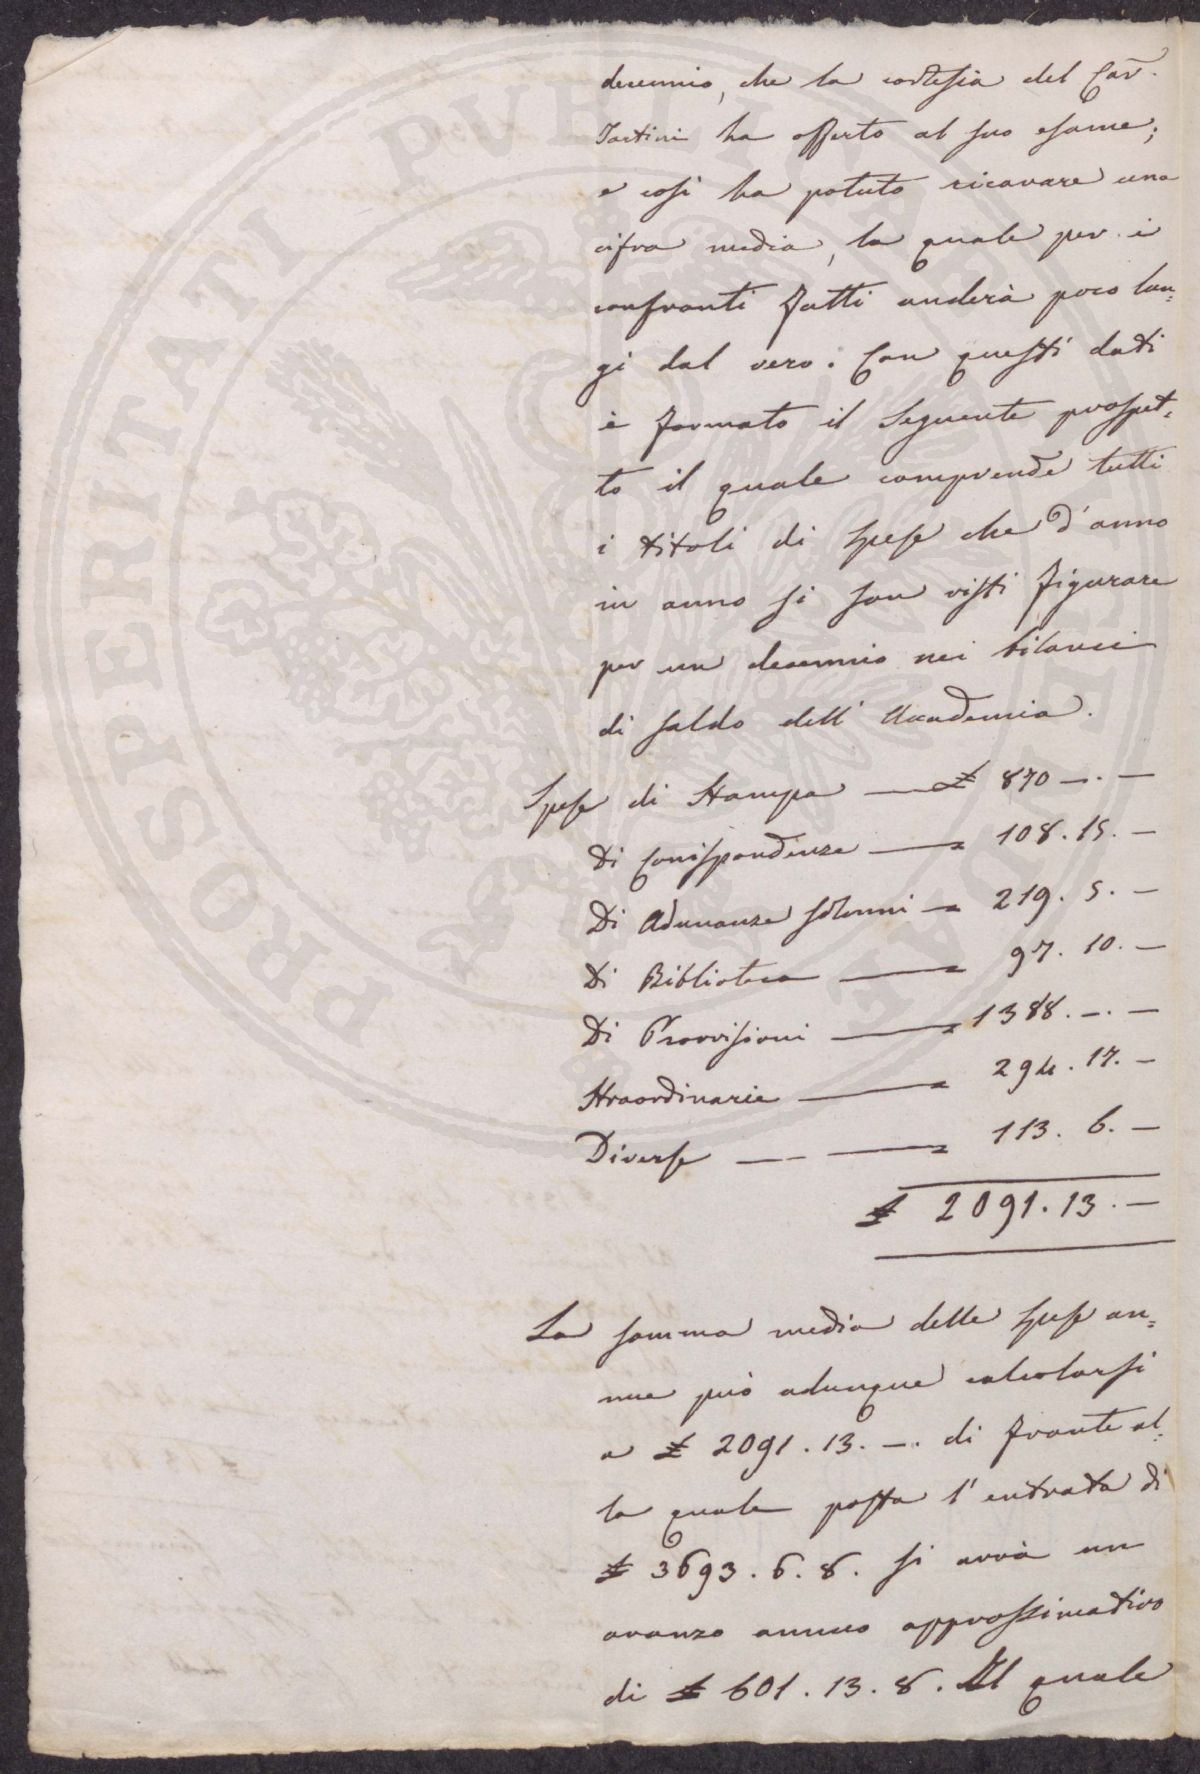 decennio, che la cortesia del Cav.
Tartini ha offerto al suo esame;
e così ha potuto ricavare una
cifra media, la quale per i
confronti fatti anderà poco lun=
gi dal vero. Con questi dati
è formato il seguente prospet=
to il quale comprende tutti
i titoli di spese che d'anno
in anno si son visti figurare
per un decennio nei bilanci
di saldo dell'Accademia.
Spese di Stampa — £ 870 —. —
Di Corrispondenza — 108. 15. —
Di Adunanze solenni — 219. 5. —
Di Biblioteca — 97. 10. —
Di Provvisioni — 1388. —. —
Straordinarie — 294. 17. —
Diverse — 113. 6. —
£ 2091. 13. —
La somma media delle spese an=
nue può adunque calcolarsi
a £ 2091. 13. —. di fronte al=
la quale posta l'entrata di
£ 3693. 6. 8. si avrà un
avanzo annuo approssimativo
di £ 601. 13. 8. Il quale
PROSPERITATI PVBLICAE AVGENDAE